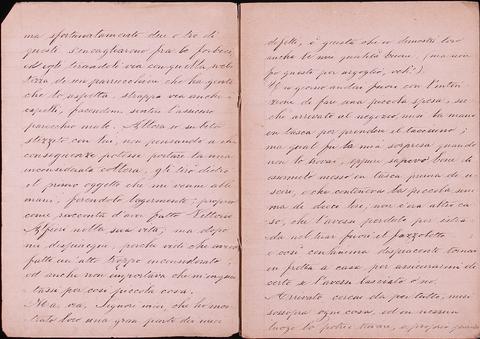 ma sfortunatamente due o tre di
questi s'incagliarono fra le forbici,
ed egli tirandoli via con quella
di un parrucchiere che ha gente
che lo aspetta, strappa via anche
capelli, facendomi sentire l'assieme
parecchio male. Allora io subito
stizzito con lui, non pensando a che
conseguenze potesse portare la mia
inconsiderata collera, gli tiro dietro
il primo oggetto che mi venne alle
mani, ferendolo leggermente; proprio
come racconta d'aver fatto Vittorio
Alfieri nella sua vita; ma dopo
mi dispiacque, perché vidi che avevo
fatto un atto rozzo inconsiderato;
ed anche non importava che
per così piccola cosa.
Ma, via, Signori miei, che ho mos-
trato loro una gran parte dei miei
difetti, è giusto che io dimostri loro
anche le mie qualità buone, (ma non
fo questo per orgoglio, veh!).
Un giorno andai fuori con l'inten-
zione di fare una piccola spesa, su-
che arrivato al negozio, misi la mano
in tasca per prendere il taccuino;
ma qual fu la mia sorpresa quando
non lo trovai, eppure sapevo bene di
essermelo messo in tasca prima di u-
scire, e che conteneva la piccola som-
ma di dieci lire, non v'era altro ca-
so, che l'avessi perduto per istra-
da nel tirar fuori il fazzoletto
e così contrariato dispiacente tornai
in fretta a casa per assicurarmi di
certo se l'avessi lasciato o no.
Arrivato cercai da per tutto, misi
sossopra ogni cosa, ed in nessun
luogo lo potei trovare, e proprio quando